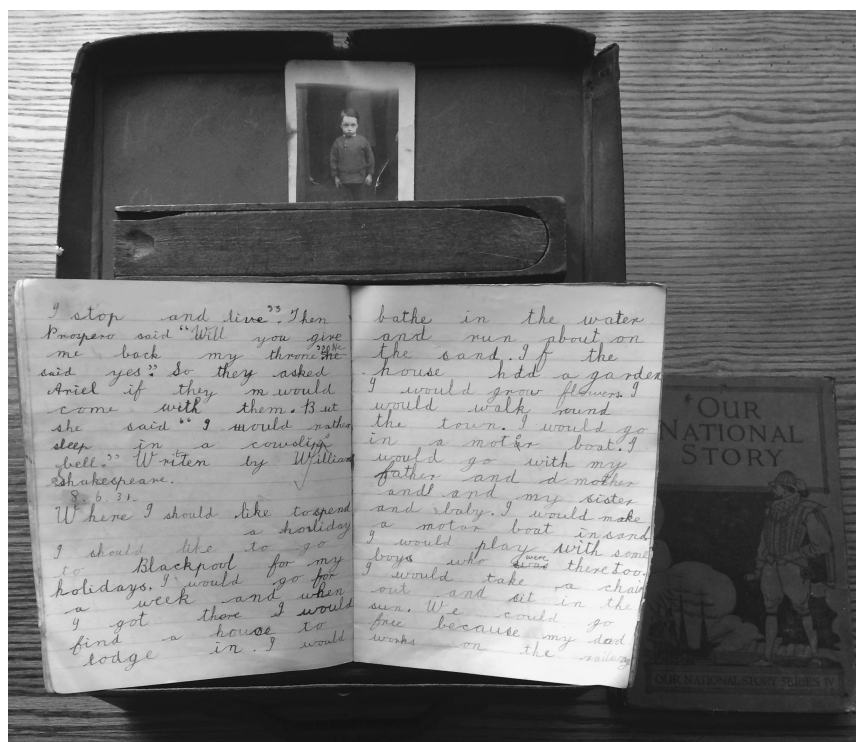 I stop and live". Then
Prospero said "Will you give
me back my throne" He
said yes". So they asked
Ariel if they would
come with them. But
she said "I would rather
sleep in a cowslip's
bell." Writen by William
Shakespeare.
8. 6. 31.
Where I should like to spend
a holiday
I should like to go
to Blackpool for my
holidays. I would go for
a week and when
I got there I would
find a house to
lodge in. I would
bathe in the water
and run about on
the sand. If the
house had a garden
I would grow flowers. I
would walk round
the town. I would go
in a motor boat. I
would go with my
father and mother
and and my sister
and baby. I would make
a motor boat in sand
I would play with some
boys who were there too.
I would take a chair
out and sit in the
sun. We could go
free because my dad
works on the railway
OUR
NATIONAL
STORY
OUR NATIONAL STORY SERIES IV